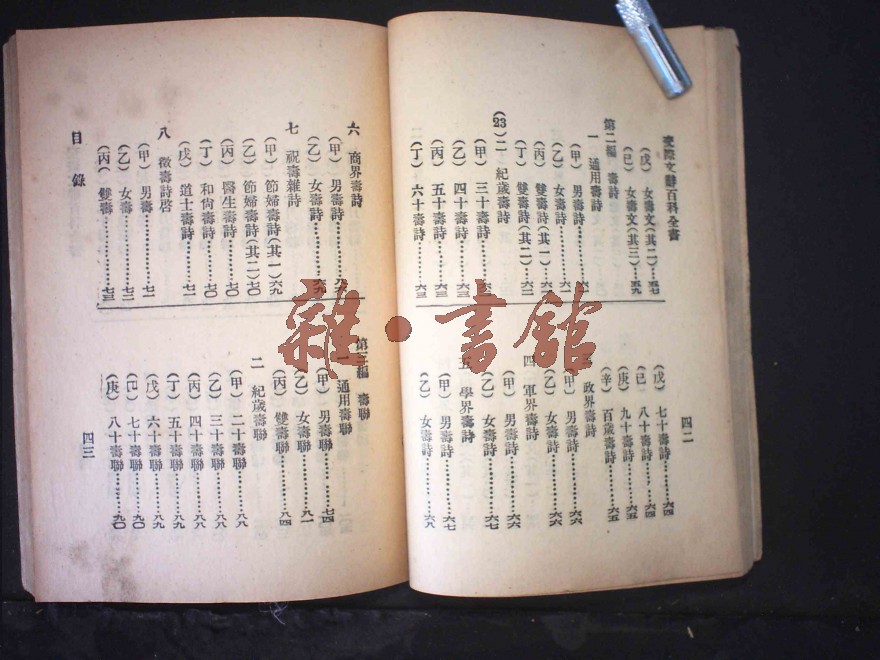 交際文辭百科全書
(戊) 女壽文(其二)……五七
(己) 女壽文(其三)……五九
第二編 壽詩
一 通用壽詩
(甲) 男壽詩………
(乙) 女壽詩………六一
(丙) 雙壽詩(其一)……六一
(丁) 雙壽詩(其二)……六二
(23) 二 紀歲壽詩
(甲) 三十壽詩………六三
(乙) 四十壽詩………六三
(丙) 五十壽詩………六三
(丁) 六十壽詩………六三
四二
(戊) 七十壽詩………六四
(己) 八十壽詩………六四
(庚) 九十壽詩………六五
(辛) 百歲壽詩………六五
三 政界壽詩
(甲) 男壽詩………六六
(乙) 女壽詩………六六
四 軍界壽詩
(甲) 男壽詩………六六
(乙) 女壽詩………六七
五 學界壽詩
(甲) 男壽詩………六七
(乙) 女壽詩………六八
六 商界壽詩
(甲) 男壽詩………六八
(乙) 女壽詩………六九
七 祝壽雜詩
(甲) 節婦壽詩(其一)六九
(乙) 節婦壽詩(其二)七〇
(丙) 醫生壽詩………七〇
(丁) 和尙壽詩………七〇
(戊) 道士壽詩………七一
八 徵壽詩啓
(甲) 男壽………七一
(乙) 女壽………七二
(丙) 雙壽………七三
第三編 壽聯
一 通用壽聯
(甲) 男壽聯………七四
(乙) 女壽聯………八一
(丙) 雙壽聯………八四
二 紀歲壽聯
(甲) 二十壽聯………八八
(乙) 三十壽聯………八八
(丙) 四十壽聯………八八
(丁) 五十壽聯………八九
(戊) 六十壽聯………八九
(己) 七十壽聯………九〇
(庚) 八十壽聯………九〇
目錄
四三
雜·書館